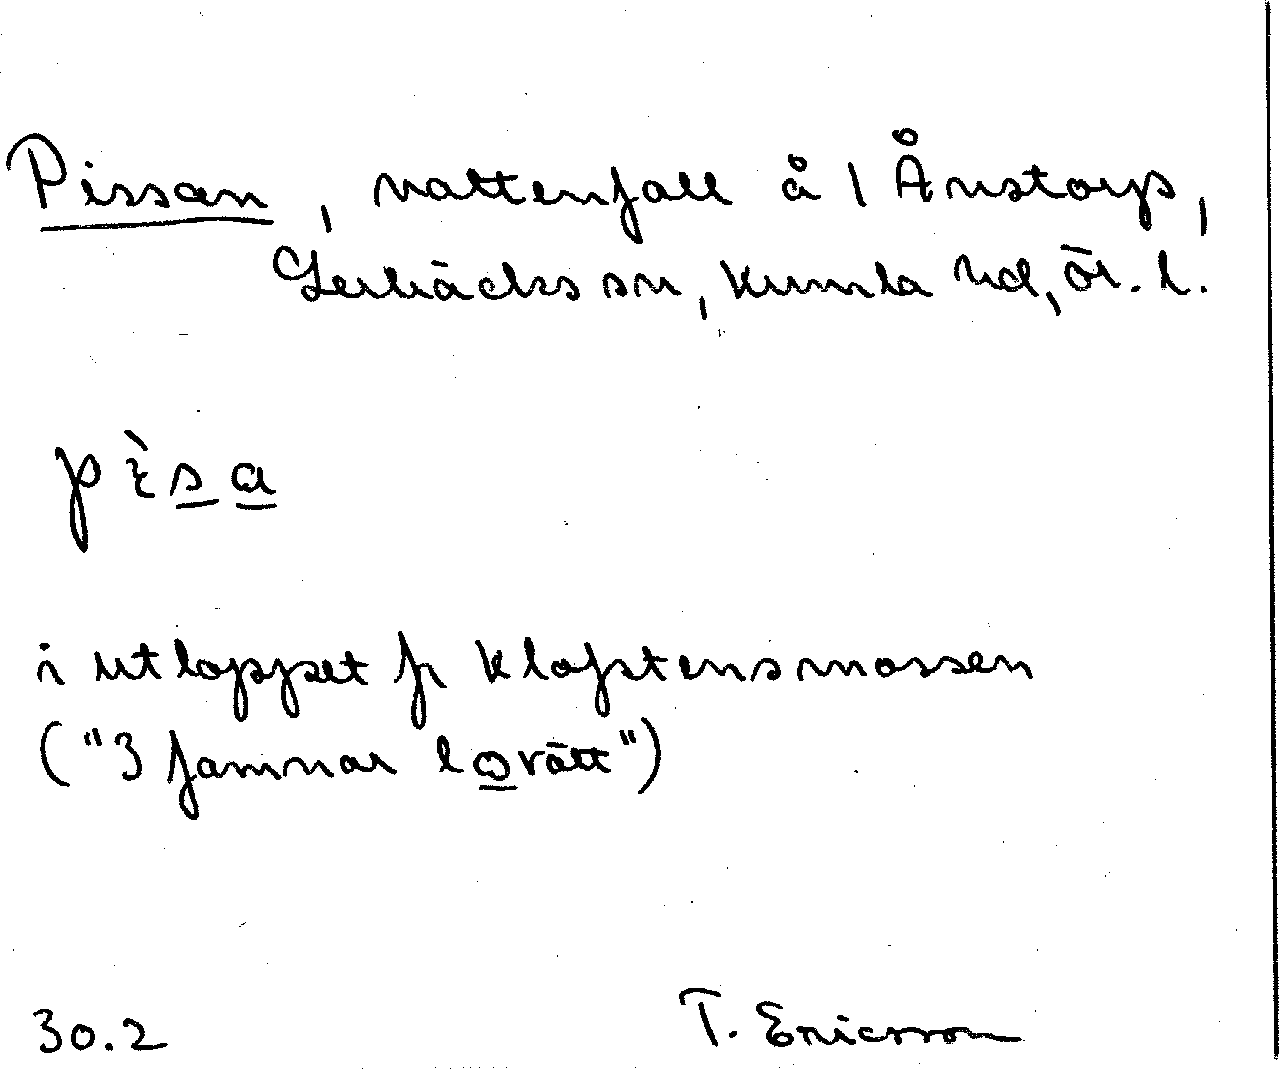 Pissan, vattenfall å 1 Ånstorp,
Lerbäcks sn, Kumla hd, Ör. l.
pɪ̀sa
i utloppet fr Kloftensmossen
("3 famnar lovätt")
30.2 T. Ericsson